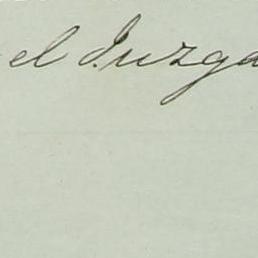 el Juzga